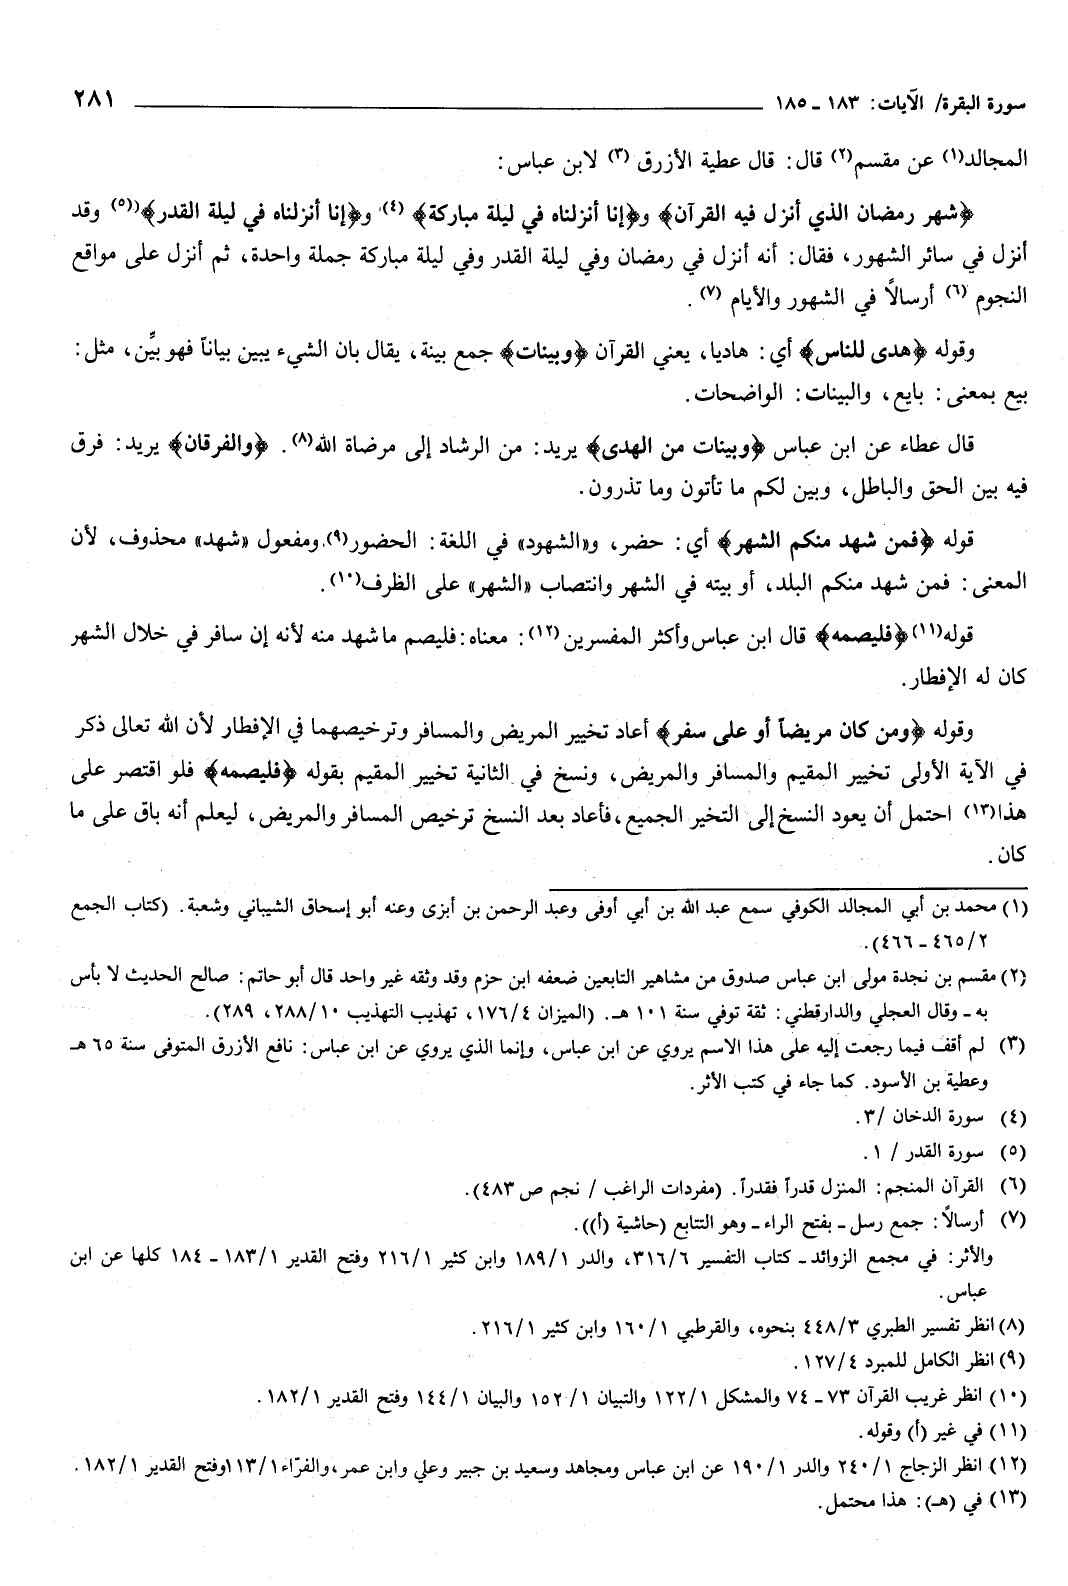 سورة البقرة/ الآيات: ١٨٣ ـ ١٨٥ ٢٨١
المجالد(١) عن مقسم(٢) قال: قال عطية الأزرق (٣) لابن عباس:
﴿شهر رمضان الذي أنزل فيه القرآن﴾ و﴿إنا أنزلناه في ليلة مباركة﴾ (٤) و﴿إنا أنزلناه في ليلة القدر﴾(٥) وقد
أنزل في سائر الشهور، فقال: أنه أنزل في رمضان وفي ليلة القدر وفي ليلة مباركة جملة واحدة، ثم أنزل على مواقع
النجوم (٦) أرسالًا في الشهور والأيام (٧).
وقوله ﴿هدى للناس﴾ أي: هاديا، يعني القرآن ﴿وبينات﴾ جمع بينة، يقال بان الشيء يبين بياناً فهو بيِّن، مثل:
بيع بمعنى: بايع، والبينات: الواضحات.
قال عطاء عن ابن عباس ﴿وبينات من الهدى﴾ يريد: من الرشاد إلى مرضاة الله(٨). ﴿والفرقان﴾ يريد: فرق
فيه بين الحق والباطل، وبين لكم ما تأتون وما تذرون.
قوله ﴿فمن شهد منكم الشهر﴾ أي: حضر، و«الشهود» في اللغة: الحضور(٩). ومفعول «شهد» محذوف، لأن
المعنى: فمن شهد منكم البلد، أو بيته في الشهر وانتصاب «الشهر» على الظرف(١٠).
قوله(١١) ﴿فليصمه﴾ قال ابن عباس وأكثر المفسرين(١٢): معناه: فليصم ما شهد منه لأنه إن سافر في خلال الشهر
كان له الإفطار.
وقوله ﴿ومن كان مريضاً أو على سفر﴾ أعاد تخيير المريض والمسافر وترخيصهما في الإفطار لأن الله تعالى ذكر
في الآية الأولى تخيير المقيم والمسافر والمريض، ونسخ في الثانية تخيير المقيم بقوله ﴿فليصمه﴾ فلو اقتصر على
هذا(١٣) احتمل أن يعود النسخ إلى التخير الجميع، فأعاد بعد النسخ ترخيص المسافر والمريض، ليعلم أنه باق على ما
كان.
(١) محمد بن أبي المجالد الكوفي سمع عبد الله بن أبي أوفى وعبد الرحمن بن أبزى وعنه أبو إسحاق الشيباني وشعبة. (كتاب الجمع
٢/ ٤٦٥ ـ ٤٦٦).
(٢) مقسم بن نجدة مولى ابن عباس صدوق من مشاهير التابعين ضعفه ابن حزم وقد وثقه غير واحد قال أبو حاتم: صالح الحديث لا بأس
به ـ وقال العجلي والدارقطني: ثقة توفي سنة ١٠١ هـ. (الميزان ٤/ ١٧٦، تهذيب التهذيب ١٠/ ٢٨٨، ٢٨٩).
(٣) لم أقف فيما رجعت إليه على هذا الاسم يروي عن ابن عباس، وإنما الذي يروي عن ابن عباس: نافع الأزرق المتوفى سنة ٦٥ هـ
وعطية بن الأسود. كما جاء في كتب الأثر.
(٤) سورة الدخان /٣.
(٥) سورة القدر / ١.
(٦) القرآن المنجم: المنزل قدراً فقدراً. (مفردات الراغب / نجم ص ٤٨٣).
(٧) أرسالًا: جمع رسل ـ بفتح الراء ـ وهو التتابع (حاشية (أ)).
والأثر: في مجمع الزوائد ـ كتاب التفسير ٦/ ٣١٦، والدر ١/ ١٨٩ وابن كثير ١/ ٢١٦ وفتح القدير ١/ ١٨٣ ـ ١٨٤ كلها عن ابن
عباس.
(٨) انظر تفسير الطبري ٣/ ٤٤٨ بنحوه، والقرطبي ١/ ١٦٠ وابن كثير ١/ ٢١٦.
(٩) انظر الكامل للمبرد ٤/ ١٢٧.
(١٠) انظر غريب القرآن ٧٣ ـ ٧٤ والمشكل ١/ ١٢٢ والتبيان ١/ ١٥٢ والبيان ١/ ١٤٤ وفتح القدير ١/ ١٨٢.
(١١) في غير (أ) وقوله.
(١٢) انظر الزجاج ١/ ٢٤٠ والدر ١/ ١٩٠ عن ابن عباس ومجاهد وسعيد بن جبير وعلي وابن عمر، والفرّاء ١/ ١١٣ وفتح القدير ١/ ١٨٢.
(١٣) في (هـ): هذا محتمل.